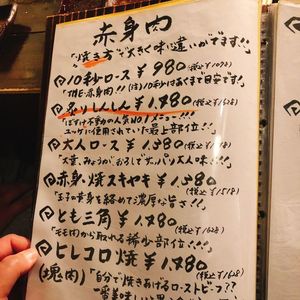 赤身肉
「焼き方で大きく味違いがです!!」
10秒ロース ¥980(税込¥1078)
「THE・赤身肉!!(注)10秒はあくまで目安です!
炙りしんしん ¥1,480(税込
人気NO.1メニュー!!!
ユッケに使用されていた最上部位!!」
大人ロース ¥1,480(税込
「大葉、みょうが、おろしでサッパリ大人味!!」
赤身焼スキヤキ ¥1,380(税込¥1518)
「玉子の黄身を絡めて濃厚な旨さ!!」
とも三角 ¥1,480(税込
「モモ肉から取れる稀少部位!!!」
ヒレコロ焼 ¥1,480(税込
(塊肉)「自分で焼きあげるローストビーフ??
一番美味い